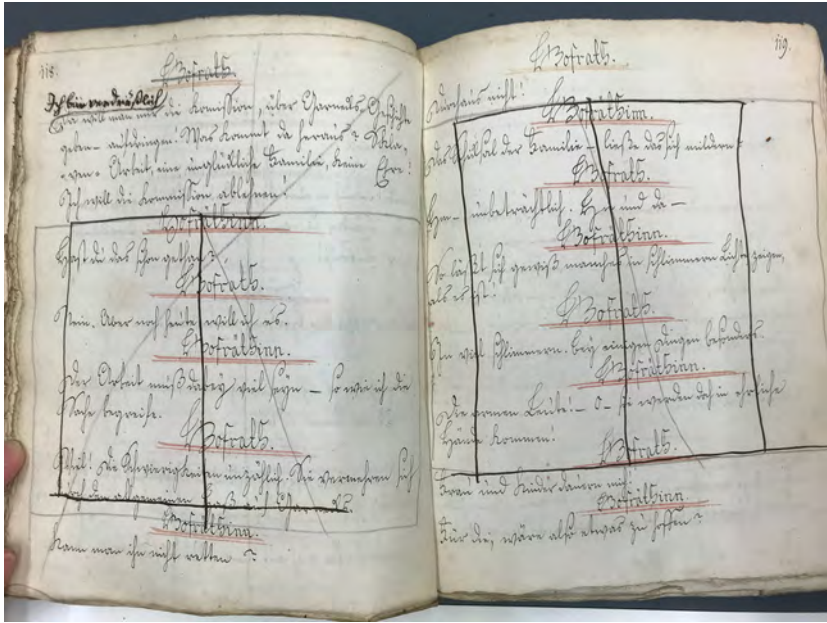 118.
Hofrath.
Ich bin verdrüßlich
Da will man mir die Komission, über Charmals Geschichte
geben – aufdringen! Was kommt da heraus?
Arbeit, eine unglükliche Familie, keine Ehre!
Ich will die Kommission ablehnen!
Hofräthinn.
Hast du das schon gethan?
Hofrath.
Nein. Aber noch heute will ich es.
Hofräthinn.
Der Arbeit muß dabey viel seyn – so wie ich die
Sache begreife.
Hofrath.
Viel! Die Schwierigkeiten unzählich. Sie vermehren sich
durch den allgemeinen Haß auf Charmals.
Hofräthinn.
Kann man ihn nicht retten?
119.
Hofrath.
Durchaus nicht!
Hofräthinn.
Das Schiksal der Familie – ließe das sich mildern?
Hofrath.
Hm – unbeträchtlich. Hie und da –
Hofräthinn.
So läßt sich gewiß manches in schlimmern Lichte zeigen,
als es ist.
Hofrath.
In viel schlimmern. bey einigen Dingen besonders.
Hofräthinn.
Die armen Leute! – O – sie werden doch in ehrliche
Hände kommen!
Hofrath.
Frau und Kinder dauern mich.
Hofräthinn.
Für die, wäre also etwas zu hoffen?